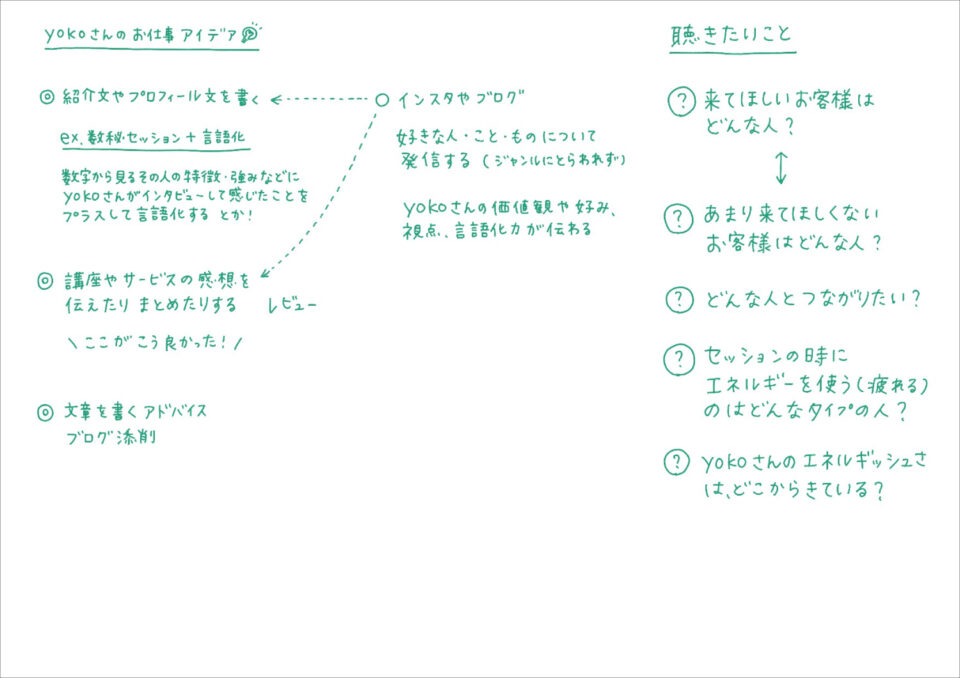 yokoさんのお仕事アイデア
◎ 紹介文やプロフィール文を書く
ex. 数秘セッション+言語化
数字から見るその人の特徴・強みなどに
yokoさんがインタビューして感じたことを
プラスして言語化する とか!
◎ 講座やサービスの感想を
伝えたり まとめたりする レビュー
\ ここがこう良かった! /
◎ 文章を書くアドバイス
ブログ添削
○ インスタやブログ
好きな人・こと・ものについて
発信する (ジャンルにとらわれず)
yokoさんの価値観や好み、
視点、言語化力が伝わる
聴きたいこと
? 来てほしいお客様は
どんな人?
? あまり来てほしくない
お客様はどんな人?
? どんな人とつながりたい?
? セッションの時に
エネルギーを使う(疲れる)
のはどんなタイプの人?
? yokoさんのエネルギッシュさ
は、どこからきている?